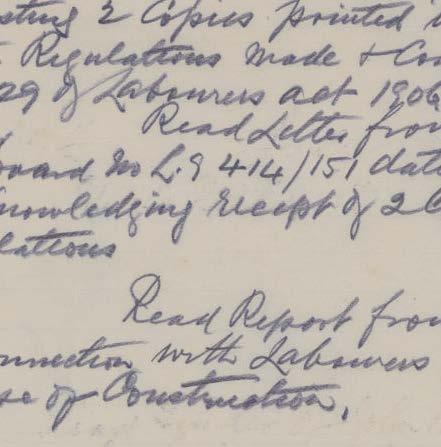 sting 2 Copies printed i
Regulations made & Con
29 of Labourers act 1906
Read Letter from
oard No L.G 414/151 date
knowledging receipt of 2 C
lations
Read Report from
nnection with Labourers
se of Construction,